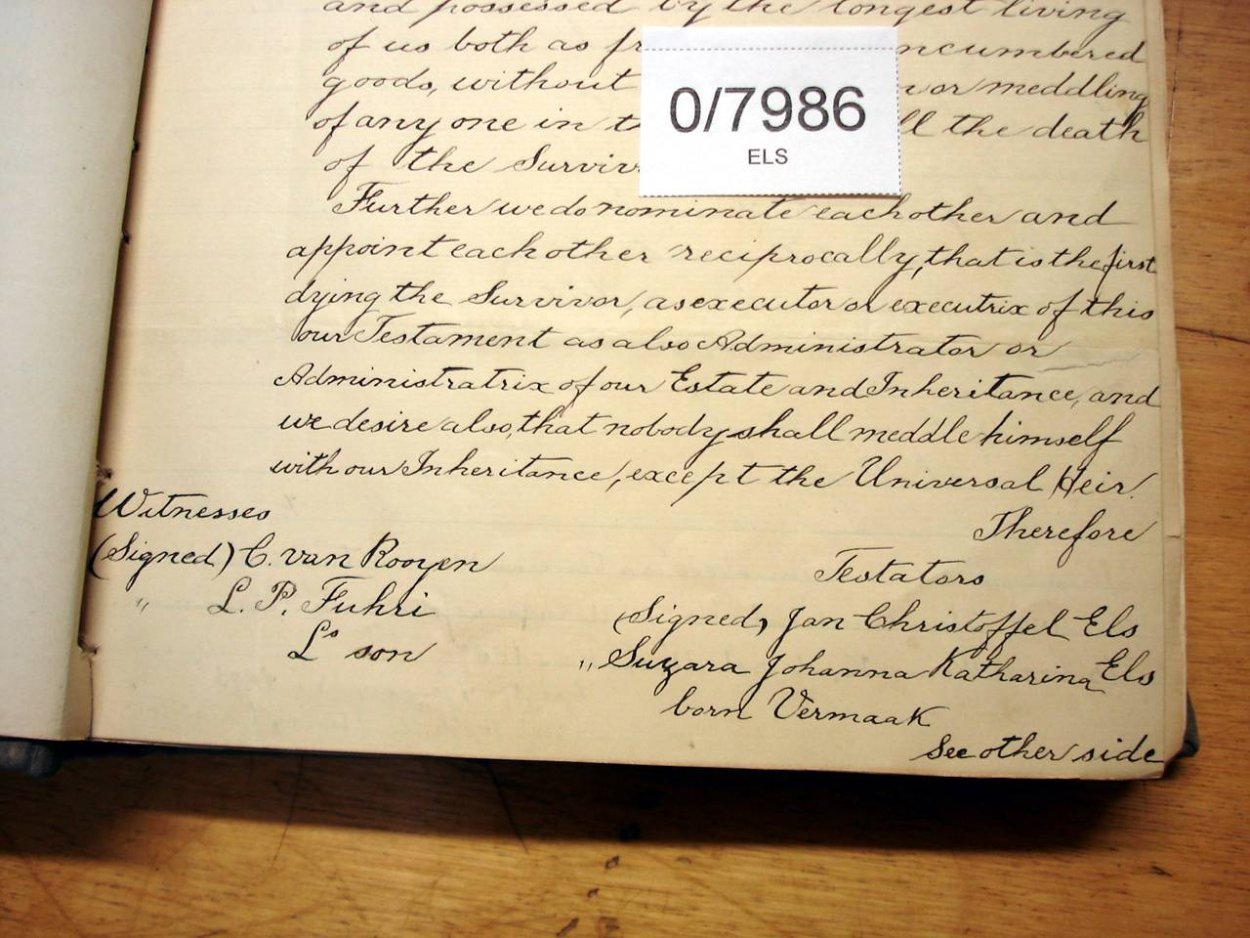 and possessed by the longest living
of us both as fr ncumbered
goods, without or meddling
of any one in t ll the death
of the Surviv
0/7986
ELS
Further we do nominate each other and
appoint each other reciprocally, that is the first
dying the Survivor, as executor or executrix of this
our Testament as also Administrator or
Administratrix of our Estate and Inheritance, and
we desire also, that nobody shall meddle himself
with our Inheritance, except the Universal Heir.
Therefore
Witnesses
(Signed) C. van Rooyen
" L. P. Fuhri
Ls son
Testators
(Signed) Jan Christoffel Els
" Suzara Johanna Katharina Els
born Vermaak
See other side